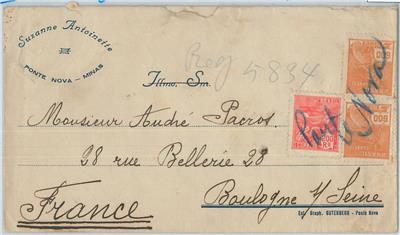 Suzanne Antoinette
PONTE NOVA - MINAS
Reg 5834
Illmo. Snr.
Monsieur André Pacros.
28 rue Bellerie 28
Boulogne s/ Seine
France
Ponte Nova
200
RS
600
600
Est. Graph. GUTENBERG - Ponte Nova